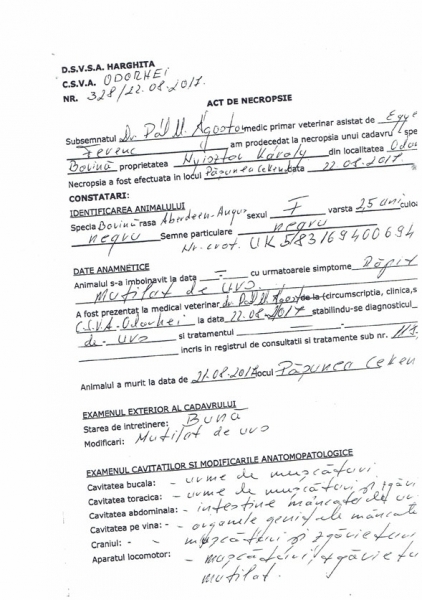 D.S.V.S.A. HARGHITA
C.S.V.A. ODORHEI
NR. 328/22.08.2017.
ACT DE NECROPSIE
Subsemnatul Dr. Pál M. Ágoston medic primar veterinar asistat de Egye
Ferenc am procedat la necropsia unui cadavru spe
Bovină proprietatea Nyisztor Karoly din localitatea Odo
Necropsia a fost efectuata in locul Păpunea Ceken data 22.08.2017.
CONSTATARI:
IDENTIFICAREA ANIMALULUI
Specia Bovină rasa Aberdeen-Angus sexul F varsta 2,5 ani culoa
negru Semne particulare negru
Nr. crot. UK 5/83/69400694
DATE ANAMNETICE
Animalul s-a imbolnavit la data - cu urmatoarele simptome Răpit
Mutilat de urs.
A fost prezentat la medical veterinar dr. Pál M. Ágoston de la (circumscriptia, clinica, s
C.S.V.A. Odorhei la data 22.08.2017 stabilindu-se diagnosticul
de - urs si tratamentul -
incris in registrul de consultatii si tratamente sub nr.
Animalul a murit la data de 21.08.2017 locul Păpunea Ceken
EXAMENUL EXTERIOR AL CADAVRULUI
Starea de intretinere: Bună
Modificari: Mutilat de urs
EXAMENUL CAVITATILOR SI MODIFICARILE ANATOMOPATOLOGICE
Cavitatea bucala: - urme de mușcături.
Cavitatea toracica: - urme de mușcături și zgâri
Cavitatea abdominala: - intestine mâncate de ur
Cavitatea pe vina: - organele genitale mâncate
Craniul: - - mușcături și zgârietur
Aparatul locomotor: - mușcături, zgârietu
mutilat.